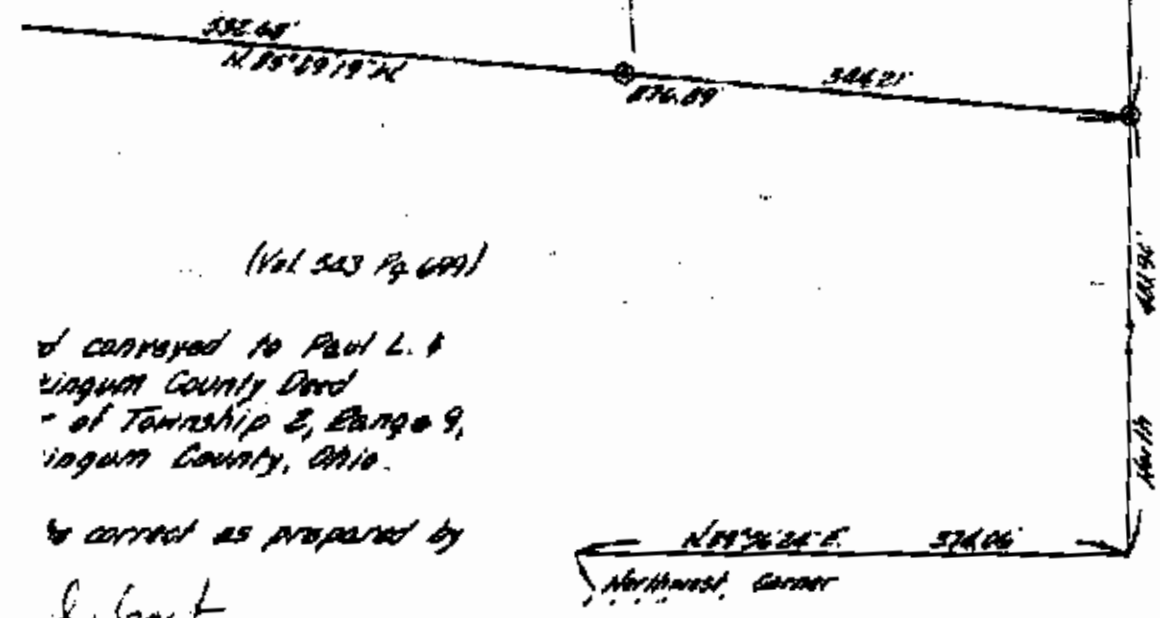 532.68'
N 85° 19'19" W
876.89'
344.21'
(Vol. 543 Pg.
North
d conveyed to Paul L. &
kingum County Deed
of Township 2, Range 9,
ingum County, Ohio.
correct as prepared by
N 89° 36' 24" E. 374.06'
Northwest Corner